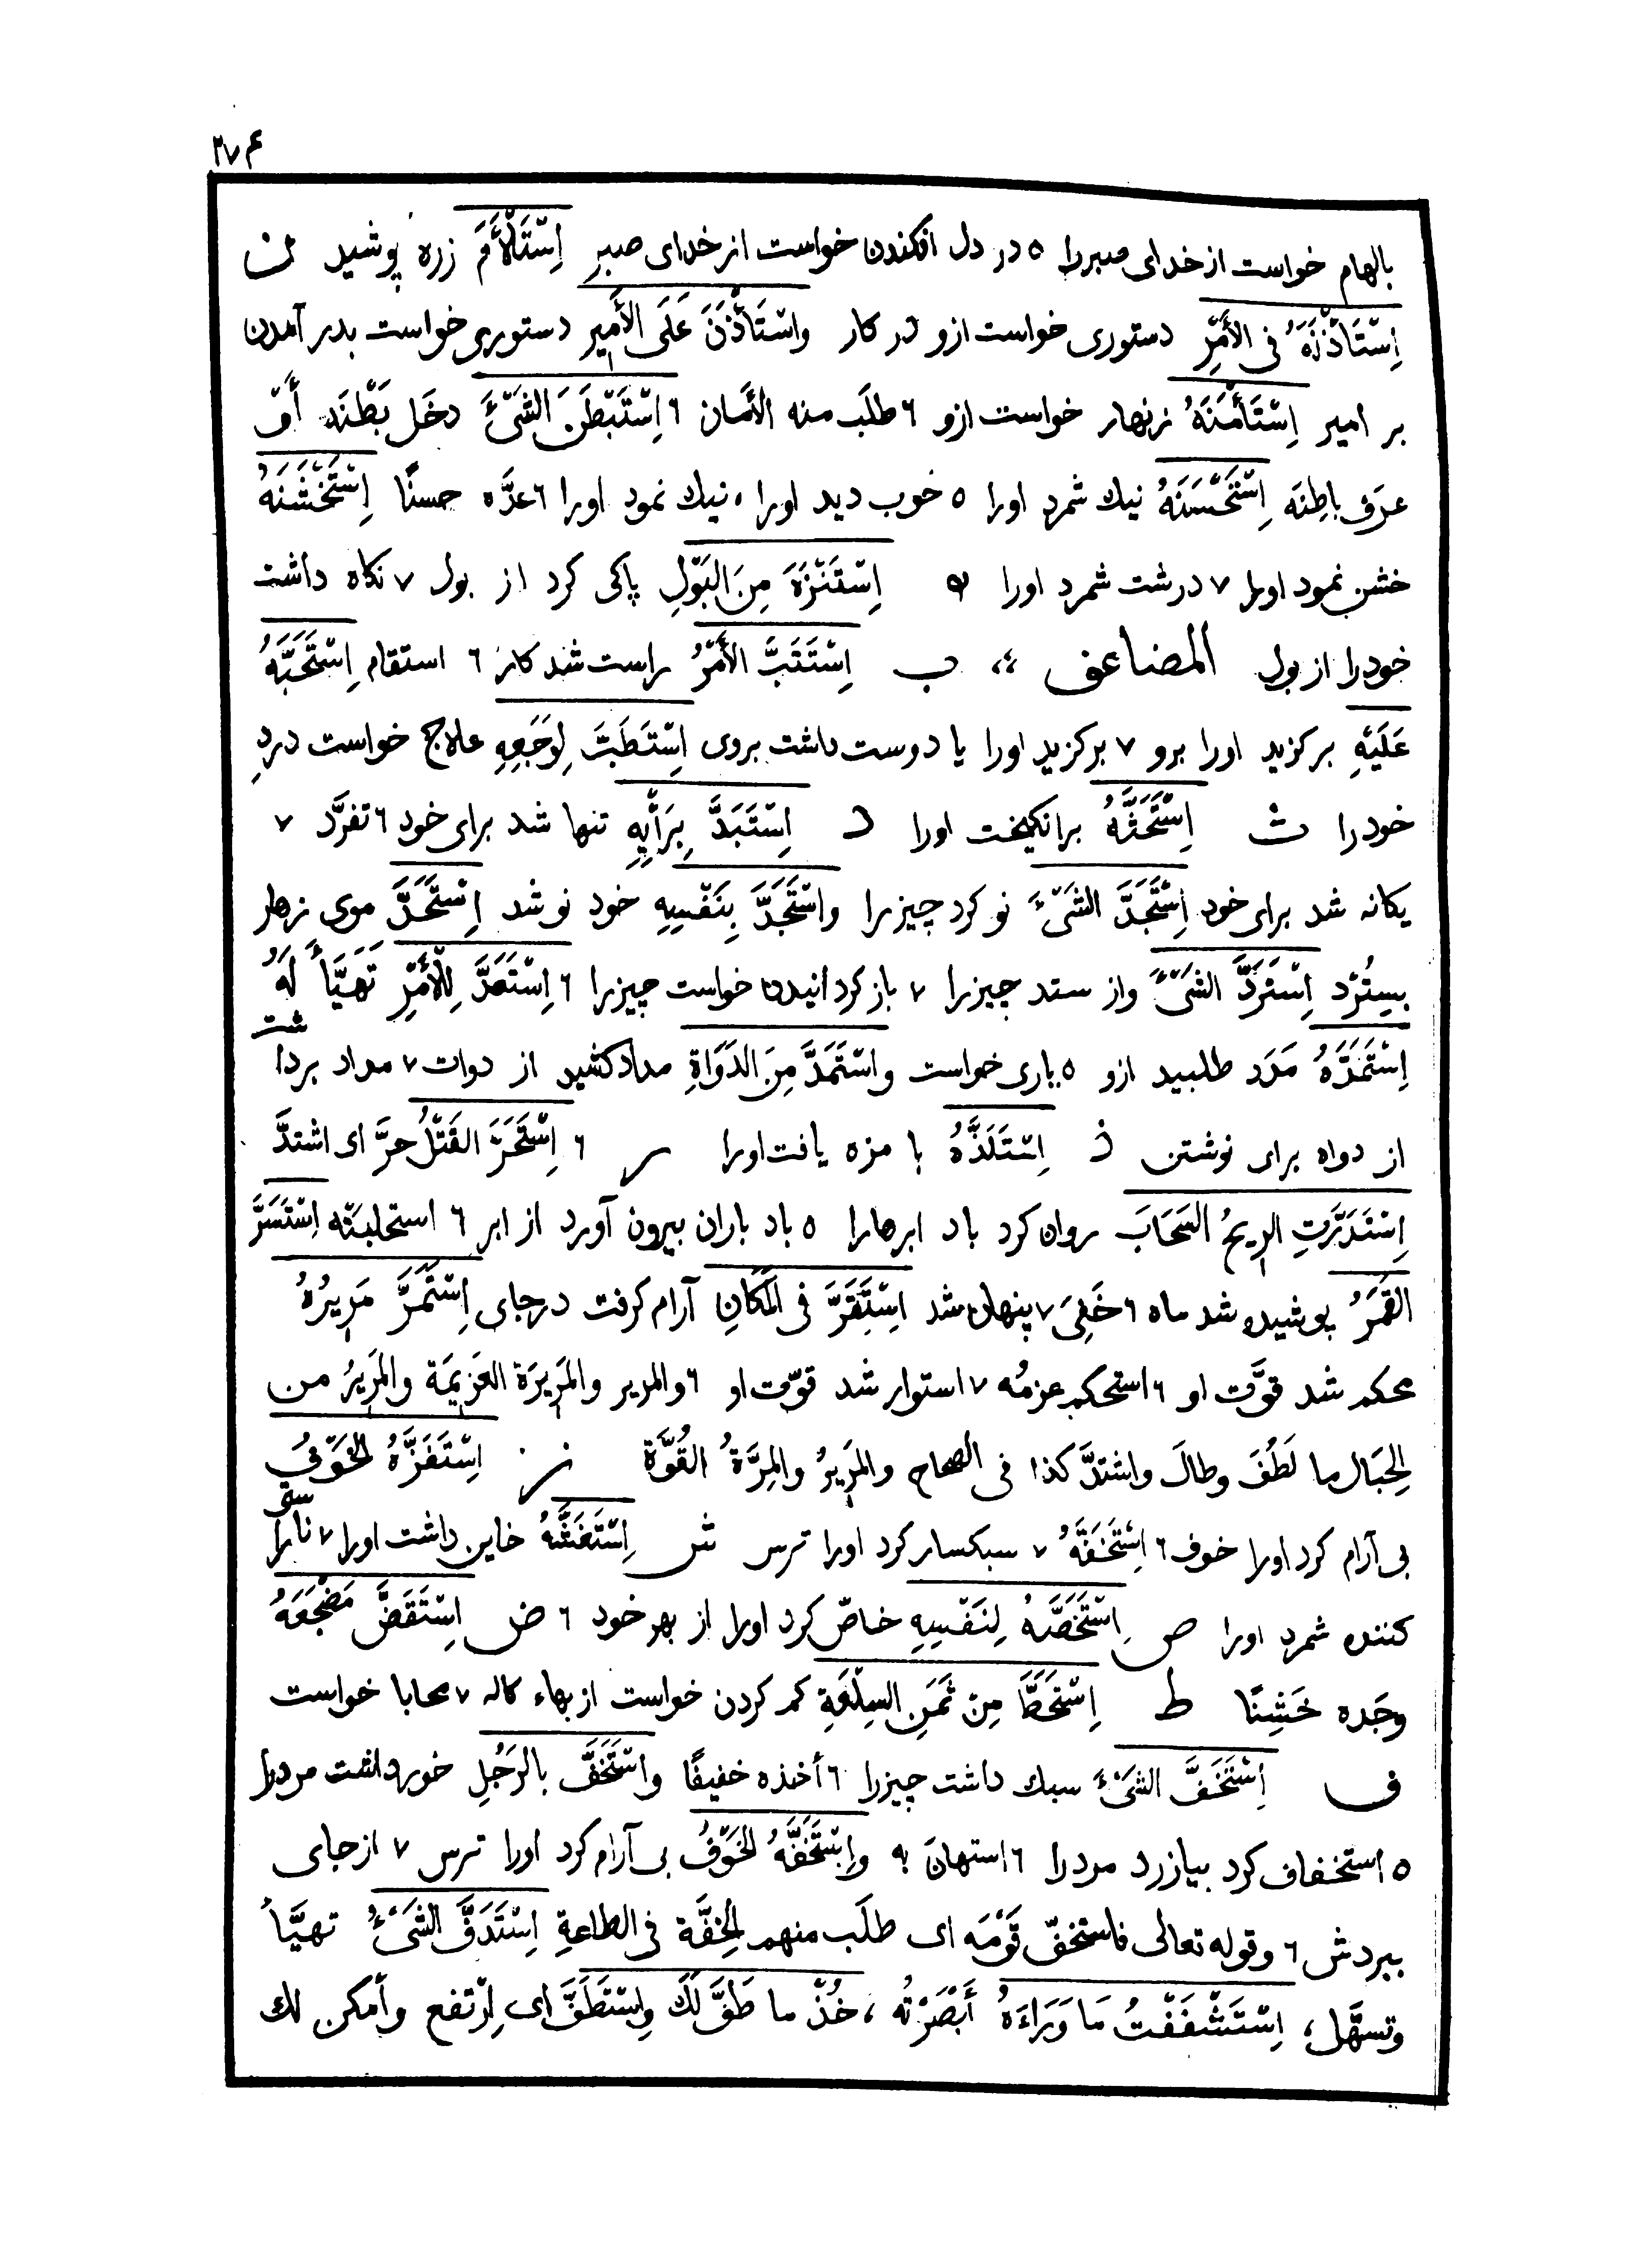 ۲۷۴
بالهام خواست از خدای صبر را ۵ در دل افکندن خواست از خدای صبر اِسْتَلْأَمَ زره پوشید ن
اِسْتَأْذَنَهُ فی الأَمْرِ دستوری خواست ازو در کار واسْتَأْذَنَ عَلَی الأَمیرِ دستوری خواست بدر آمدن
بر امیر اِسْتَأْمَنَهُ زنهار خواست ازو ٦ طلَب منه الأَمان ٦ اِسْتَبْطَنَ الشَیْءَ دخَل بَطْنَه أَوْ
عرَف باطِنَه اِسْتَحْسَنَهُ نیك شمرد اورا ۵ خوب دید اورا ۵ نیك نمود اورا ٦ عدَّه حسنًا اِسْتَخْشَنَهُ
خشن نمود اورا ۷ درشت شمرد اورا ه اِسْتَنْزَهَ مِنَ البَوْلِ پاکی کرد از بول ۷ نکاه داشت
خود را از بول المضاعف ،، ب اِسْتَتَبَّ الأَمْرُ راست شد کار ٦ استقام اِسْتَحَبَّهُ
عَلَیْهِ برکزید اورا برو ۷ برکزید اورا یا دوست داشت بروی اِسْتَطَبَّ لِوَجَعِهِ علاج خواست دردِ
خود را ث اِسْتَحَثَّهُ برانکیخت اورا د اِسْتَبَدَّ بِرَأْیِهِ تنها شد برای خود ٦ تفرَّد ۷
یکانه شد برای خود اِسْتَجَدَّ الشَیْءَ نو کرد چیز را واسْتَجَدَّ بِنَفْسِهِ خود نو شد اِسْتَحَدَّ موی زهار
بسِتُرْد اِسْتَرَدَّ الشَیْءَ واز ستد چیز را ۷ باز کردانیدن خواست چیز را ٦ اِسْتَعَدَّ لِلْأَمْرِ تَهَیَّأَ لَهُ
اِسْتَمَدَّهُ مَدَد طلبید ازو ۵ یاری خواست واسْتَمَدَّ مِنَ الدَوَاةِ مداد کشید از دوات ۷ مداد بردا شت
از دواه برای نوشتن ذ اِسْتَلَذَّهُ با مزه یافت اورا ر ٦ اِسْتَحَرَّ القَتْلُ حرَّ ای اشتدَّ
اِسْتَدَرَّتِ الریحُ السَحَابَ روان کرد باد ابرها را ۵ باد باران بیرون آورد از ابر ٦ استحلبَتْه اِسْتَسَرَّ
القَمَرُ پوشیده شد ماه ٦ خَفِیَ ۷ پنهان شد اِسْتَقَرَّ فی المَکَانِ آرام کرفت در جای اِسْتَمَرَّ مَریرُهُ
محکم شد قوَّت او ٦ استحکم عزمُه ۷ استوار شد قوّت او ٦ والمریر والمَریرَة العَزیمَة والمَریرُ من
الحِبَال ما لَطُفَ وطالَ واشتدَّ کذا فی الصحاح والمَریرُ والمِرَّةُ القُوَّة ز اِسْتَفَزَّهُ الخَوْفُ
بی آرام کرد اورا خوف ٦ اِسْتَخَفَّهُ ۷ سبکسار کرد اورا ترس ش اِسْتَغَشَّهُ خاین داشت اورا ۷ نارا ستی
کننده شمرد اورا ص اِسْتَخَصَّهُ لِنَفْسِهِ خاصّ کرد اورا از بهر خود ٦ ض اِسْتَقَضَّ مَضْجَعَهُ
وجَده خَشِنًا ط اِسْتَحَطَّ مِنْ ثَمَنِ السِلْعَةِ کم کردن خواست از بهاء کاله ۷ محابا خواست
ف اِسْتَخَفَّ الشَیْءَ سبك داشت چیز را ٦ أخذه خفیفًا واسْتَخَفَّ بالرَجُلِ خورد داشت مرد را
۵ استخفاف کرد بیازرد مرد را ٦ استهانَ به واِسْتَخَفَّهُ الخَوْفُ بی آرام کرد اورا ترس ۷ از جای
ببردش ٦ وقوله تعالی فاستخفّ قَوْمَه ای طلَب منهم الخِفَّة فی الطاعةِ اِسْتَدَفَّ الشَیْءُ تهیَّأ
وتسهَّل، اِسْتَشْفَفْتُ مَا وَرَاءَهُ أَبْصَرْتُه ، خُذْ ما طَفَّ لَكَ واِسْتَطَفَّ ای اِرْتفع وأمکن لك